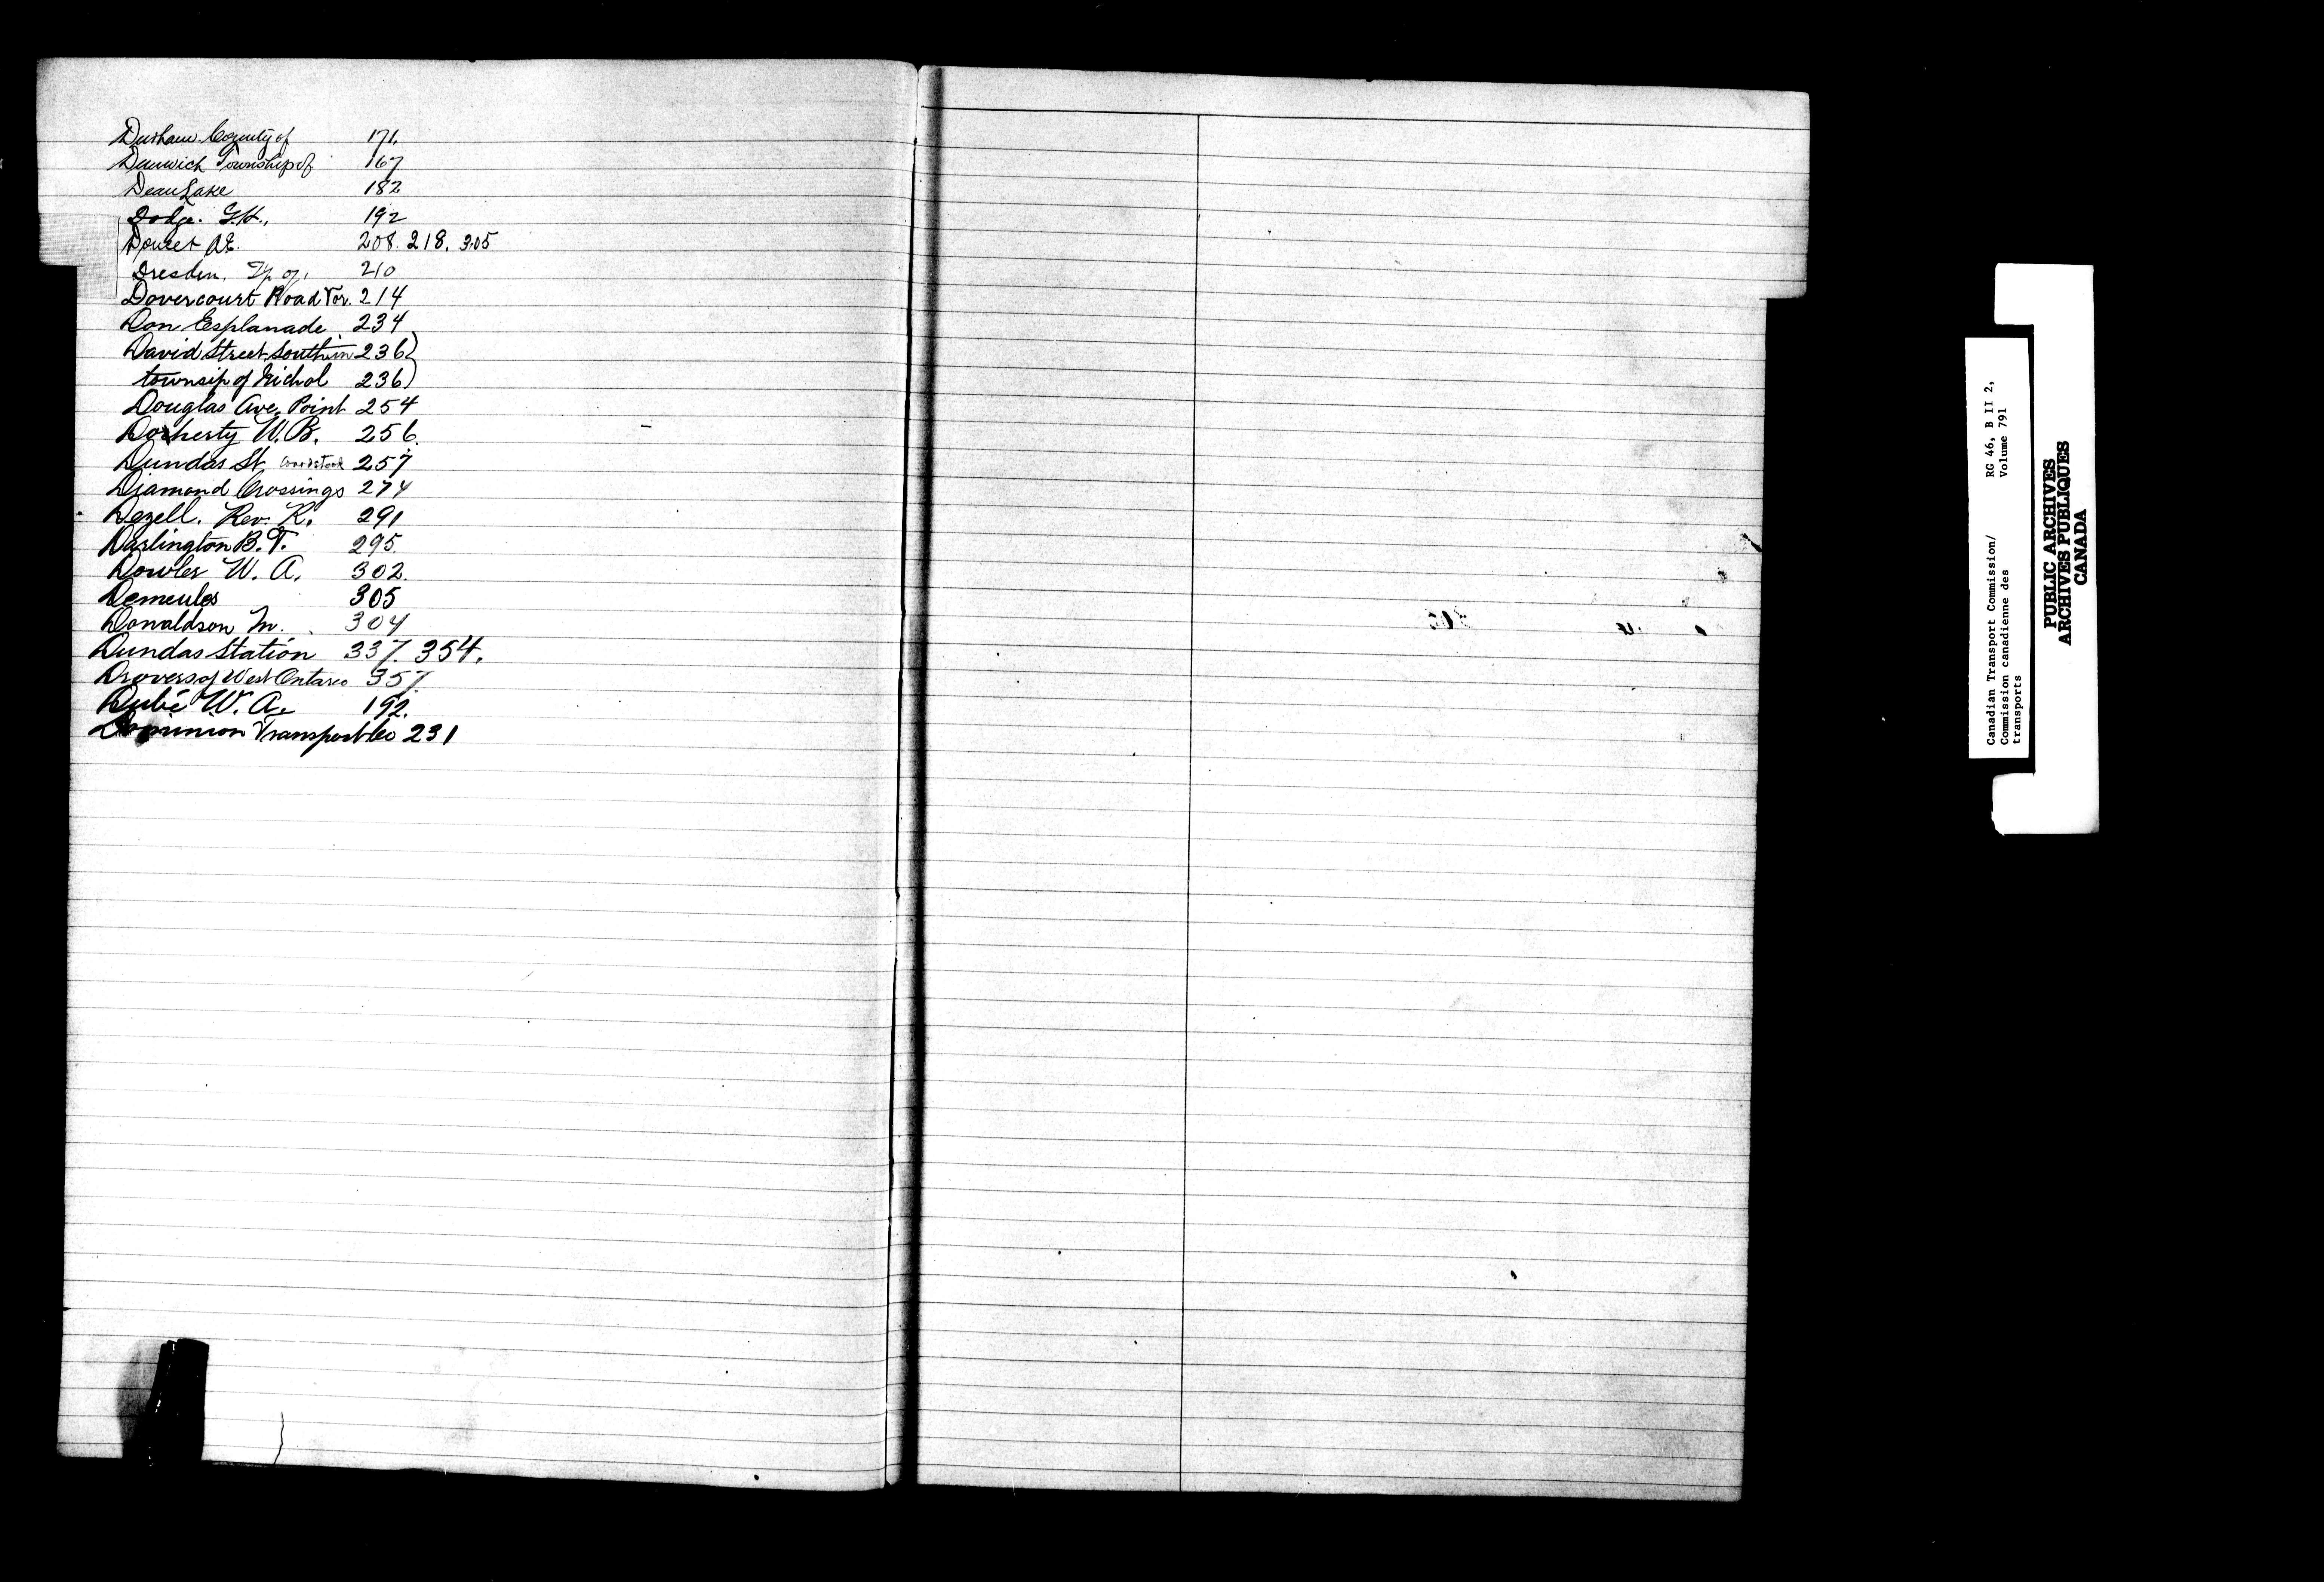 Durham County of 171.
Dunwich Township of 167
Dean Lake 182
Dodge. G.H., 192
Doucet A.E. 208. 218. 305
Dresden. Tp. of. 210
Dovercourt Road Tor. 214
Don Esplanade 234
David Street South in 236)
townsip of Nichol 236)
Douglas Ave. Point 254
Docherty W.B. 256.
Dundas St. Woodstock 257
Diamond Crossings 274
Dezell. Rev. R. 291
Darlington B.T. 295
Dowler W. A. 302.
Demeules 305
Donaldson M. 304
Dundas Station 337. 354.
Drovers of West Ontario 357
Dubé W. A. 192.
Dominion Transport Co 231
Canadian Transport Commission/ RG 46, B II 2,
Commission canadienne des Volume 791
transports
PUBLIC ARCHIVES
ARCHIVES PUBLIQUES
CANADA